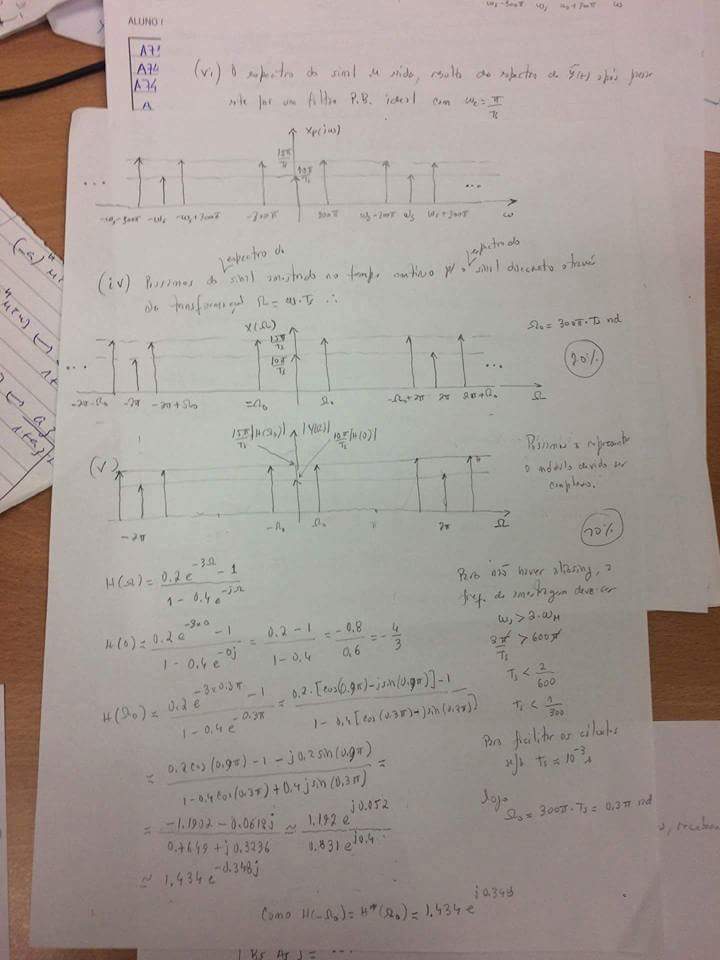 ωs-300π ωs ωs+300π ω
ALUNO
A7
A74
A74
A
(vi) O espectro do sinal
por um filtro P.B. ideal com ωc = π/Ts
Xp(jω)
15π/Ts
10π/Ts
... -ωs-300π -ωs -ωs+300π -300π 300π ωs-300π ωs ωs+300π ... ω
espectro do espectro do
(iv) Passamos do sinal amostrado no tempo contínuo p/ o sinal discreto através
da transformação Ω = ω.Ts ∴
X(Ω)
Ω0 = 300π.Ts rad
15π/Ts
10π/Ts
20%
... -2π-Ω0 -2π -2π+Ω0 -Ω0 Ω0 -Ω0+2π 2π 2π+Ω0 ... Ω
15π/Ts |H(Ω0)| |Y(Ω)| 10π/Ts |H(0)|
(v)
Passamos a representar
o módulo devido ser
complexo.
-2π -Ω0 Ω0 2π Ω
20%
H(Ω) = (0.2 e^(-3Ω) - 1)/(1 - 0.4 e^(-jΩ))
H(0) = (0.2 e^(-3×0) - 1)/(1 - 0.4 e^(-0j)) = (0.2 - 1)/(1 - 0.4) = -0.8/0.6 = -4/3
H(Ω0) = (0.2 e^(-3×0.3π) - 1)/(1 - 0.4 e^(-0.3π)) = (0.2.[cos(0.9π) - j sin(0.9π)] - 1)/(1 - 0.4[cos(0.3π) - j sin(0.3π)])
= (0.2 cos(0.9π) - 1 - j0.2 sin(0.9π))/(1 - 0.4 cos(0.3π) + 0.4 j sin(0.3π)) =
= (-1.1902 - 0.0618j)/(0.7649 + j0.3236) ≃ 1.192 e^(j0.052)/0.831 e^(j0.4)
≃ 1.434 e^(-0.348j)
Para não haver aliasing, a
freq. de amostragem deve ser
ωs > 2.ωM
2π/Ts > 600π
Ts < 2/600
Ts < 1/300
Para facilitar os cálculos
seja Ts = 10^-3 s
logo
Ω0 = 300π.Ts = 0.3π rad
Como H(-Ω0) = H*(Ω0) = 1.434 e^(j0.348)